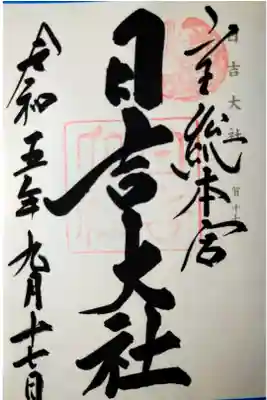 日吉大社
山王総本宮
日吉大社
令和五年九月十七日